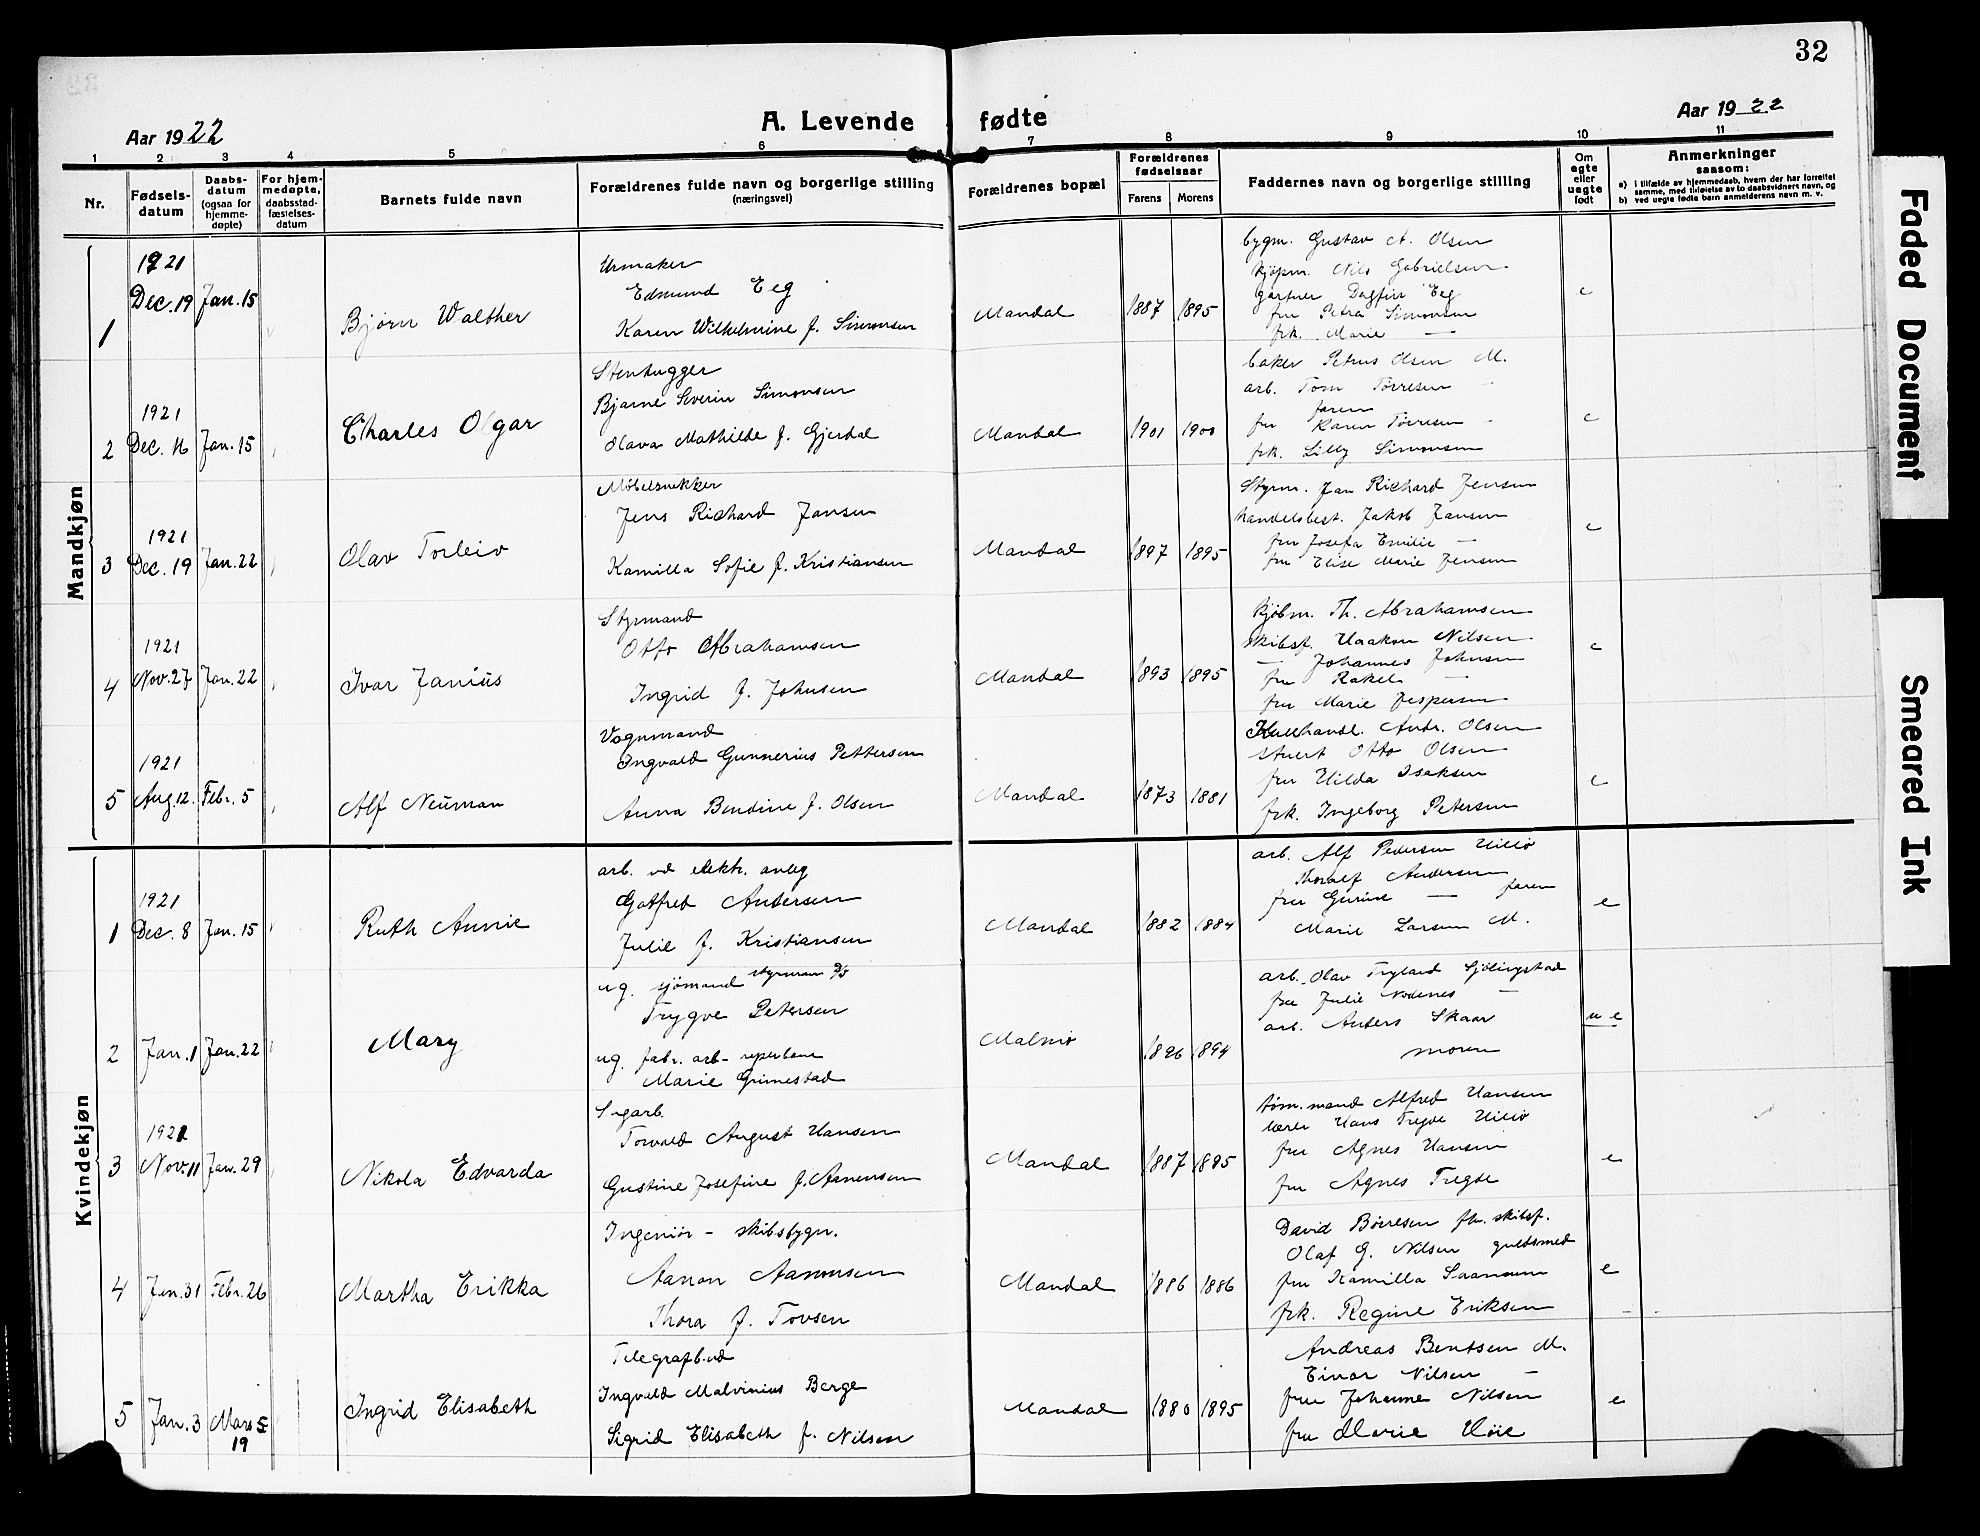 32
Aar 1922
A. Levende fødte
Aar 1922
1 2 3 4 5 6 7 8 9 10 11
Nr.
Fødselsdatum
Daabsdatum (ogsaa for hjemmedøpte)
For hjemmedøpte, daabsstadfæstelsesdatum
Barnets fulde navn
Forældrenes fulde navn og borgerlige stilling (næringsvei)
Forældrenes bopæl
Forældrenes fødselsaar
Farens Morens
Faddernes navn og borgerlige stilling
Om egte eller uegte født
Anmerkninger saasom:
a) i tilfælde av hjemmedaab, hvem der har forrettet samme, med tilføielse av to daabsvidners navn, og
b) ved uegte fødte barn anmelderens navn m. v.
Mandkjøn
1
1921
Dec. 19 Jan. 15
Bjørn Walther
Urmaker
Edmund Eeg
Karen Wilhelmine f. Simonsen
Mandal
1887 1895
bygm. Gustav A. Olsen
kjøpm. Nils Gabrielsen
gartner Dagfin Eeg
fru Petra Simonsen
frk. Marie —
e
2
1921
Dec. 16 Jan. 15
Charles Olgar
Stenhugger
Bjarne Severin Simonsen
Olava Mathilde f. Gjerdal
Mandal
1901 1900
baker Petrus Olsen M.
arb. Tom Tørresen
faren
fru Karen Tørresen
frk. Lilly Simonsen
e
3
1921
Dec. 19 Jan. 22
Olav Torleiv
Møbelsnekker
Jens Richard Jansen
Kamilla Sofie f. Kristiansen
Mandal
1897 1895
Styrm. Jan Richard Jensen
handelsbest. Jakob Jansen
fru Josefa Emilie —
fru Elise Marie Jensen
e
4
1921
Nov. 27 Jan. 22
Ivar Janius
Styrmand
Otto Abrahamsen
Ingrid f. Johnsen
Mandal
1893 1895
kjøbm. Th. Abrahamsen
skibsf. Haakon Nilsen
— Johannes Johnsen
fru Rakel —
fru Marie Jespersen
e
5
1921
Aug. 12. Febr. 5
Alf Neuman
Vognmand
Ingvald Gunnerius Pettersen
Anna Bendine f. Olsen
Mandal
1873 1881
Kullhandl. Andr. Olsen
stuert Otto Olsen
fru Hilda Isaksen
frk. Ingeborg Petersen
e
Kvindekjøn
1
1921
Dec. 8 Jan. 15
Ruth Annie
arb. ved elektr. anleg
Gotfred Andersen
Julie f. Kristiansen
Mandal
1882 1884
arb. Alf Pedersen Hillø
Thoralf Andersen
fru Gurine — faren
Marie Larsen M.
e
2
Jan. 1 Jan. 22
Mary
ug. sjømand styrman
Trygve Petersen
ug. fabr. arb- reperbane
Marie Grimestad
Malmø
1896 1894
arb. Olav Tryland Sjölingstad
fru Julie Nodenes —
arb. Anders Skaar
moren
u e
3
1921
Nov. 11 Jan. 29
Nikola Edvarda
Sigarb.
Torvald August Hansen
Gustine Josefine f. Aanensen
Mandal
1887 1895
tøm. mand Alfred Hansen
lærer Hans Tregde Hillø
fru Agnes Hansen
fru Agnes Tregde
e
4
Jan. 31 Febr. 26
Martha Erikka
Ingeniør - skibsbygn.
Aanon Aanonsen
Thora f. Tovsen
Mandal
1886 1886
David Børresen fh. skibsf.
Olaf G. Nilsen guldsmed
fru Kamilla Saanum
frk. Regine Eriksen
e
5
Jan. 3 Mars 19
Ingrid Elisabeth
Telegrafb.ud
Ingvald Malvinius Berge
Sigrid Elisabeth f. Nilsen
Mandal
1880 1895
Andreas Bentsen M.
Einar Nilsen —
fru Johanne Nilsen
fru Marie Høie
e
Faded Document
Smeared Ink